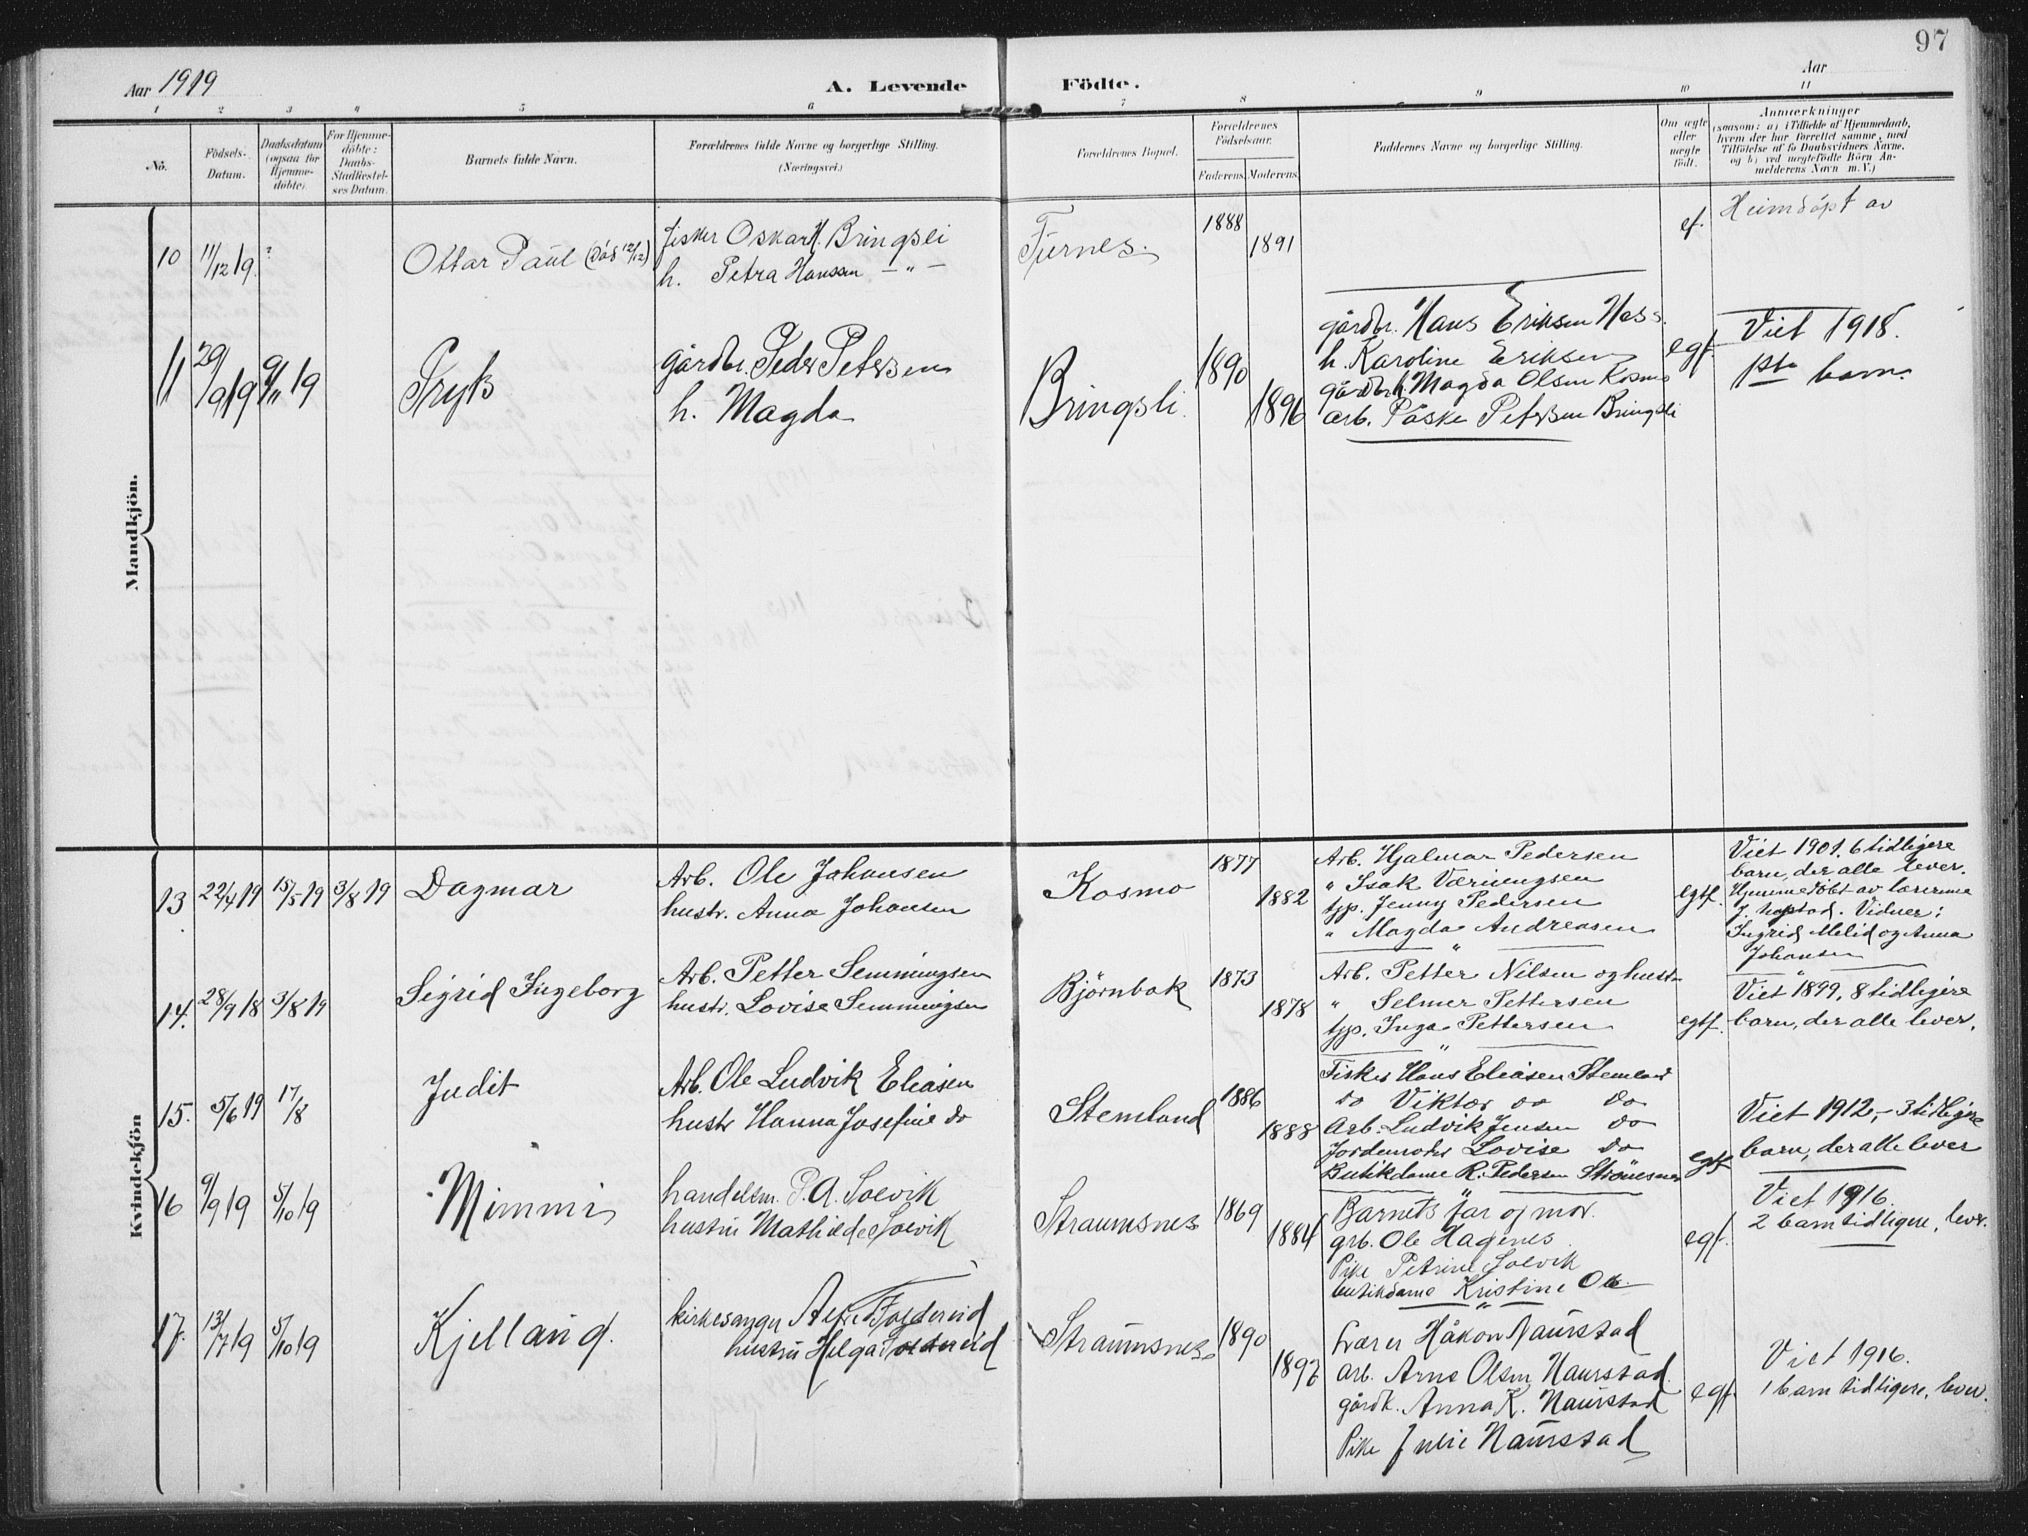 97
Aar 1919
A. Levende Födte.
Aar
1 2 3 4 5 6 7 8 9 10 11
No.
Födsels-Datum.
Daabsdatum (ogsaa for Hjemmedøbte).
For Hjemmedöbte: Daabs-Stadfæstelses Datum.
Barnets fulde Navn.
Forældrenes fulde Navne og borgerlige Stilling.
(Næringsvei.)
Forældrenes Bopæl.
Forældrenes Födselsaar.
Faderens. Moderens.
Faddernes Navne og borgerlige Stilling.
Om ægte eller uægte födt.
Anmærkninger
(saasom: a) i Tilfælde af Hjemmedaab, hvem der har forrettet samme, med Tilföielse af to Daabsvidners Navne, og b) ved uægtefödte Börn Anmelderens Navn m. V.)
Mandkjön.
10 11/12 19 ?
Ottar Paul (död 12/12)
fisker Oskar H. Bringsli
h. Petra Hanssen — " —
Furnes
1888
1891
ef.
Heimdöpt av
11 29/9 19 9/11 19
Tryls
gårdbr. Peder Petersen
h. Magda
Bringsli
1890
1896
gårdbr. Hans Eriksen Næss.
h. Karoline Eriksen
gårdbr.h. Magda Olsen Kosmo
arb. Påske Petersen Bringsli
egf.
Viet 1918.
1ste barn.
Kvindekjön
13 22/4 19 15/5 19 3/8 19
Dagmar
Arb. Ole Johansen
hustr. Anna Johansen
Kosmo
1877
1882
Arb. Hjalmar Pedersen
" Isak Værningsen
typ. Jenny Pedersen
" Magda Andreasen
egtf.
Viet 1901. 6 tidligere
barn, der alle lever.
Hjemmedöbt av lærerinne
J. Hopstad. Vidner:
Ingrid Melid og Anna
Johansen
14. 28/9 18 3/8 19
Sigrid Ingeborg
Arb. Petter Semmingsen
hustr. Lovise Semmingsen
Bjørnbak
1873
1878
Arb. Petter Nilsen og hustr
" Selmer Pettersen
typ. Inga Pettersen
egtf.
Viet 1899, 8 tidligere
barn, der alle lever.
15. 5/6 19 17/8
Judit
Arb. Ole Ludvik Eliasen
hustr Hanna Josefine do
Stemland
1886
1888
Fisker Hans Eliasen Stemland
do Viktor do do
Arb. Ludvik Jensen do
Jordemoder Lovise do
Butikdame R. Pedersen Strömsnes
egtf
Viet 1912, – 3 tidligere
barn, der alle lever
16 9/9 19 5/10 19
Mimmi
handelsm. P. A. Solvik
hustru Mathilde Solvik
Straumsnes
1869
1884
Barnets far og mor.
grb. Ole Hagenes
Pike Petrine Solvik
butikdame Kristine
egf.
Viet 1916.
2 barn tidligere, lever.
17. 13/7 19 5/10 19
Kjellaug.
kirkesanger Alfred Foldereid
hustru Helga Foldereid
Straumsnes
1890
1892
Lærer Håkon Naurstad
arb. Arne Olsen Naurstad.
gårdk. Anna K. Naurstad
Pike Julie Naurstad
egf
Viet 1916.
1 barn tidligere, lever.